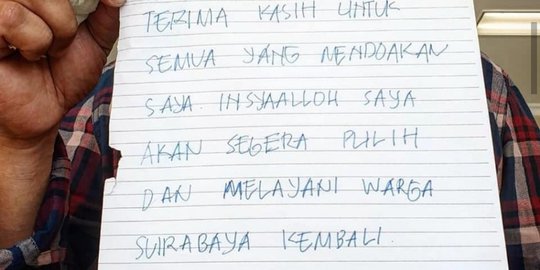 TERIMA KASIH UNTUK
SEMUA YANG MENDOAKAN
SAYA. INSYAALLOH SAYA
AKAN SEGERA PULIH
DAN MELAYANI WARGA
SURABAYA KEMBALI.